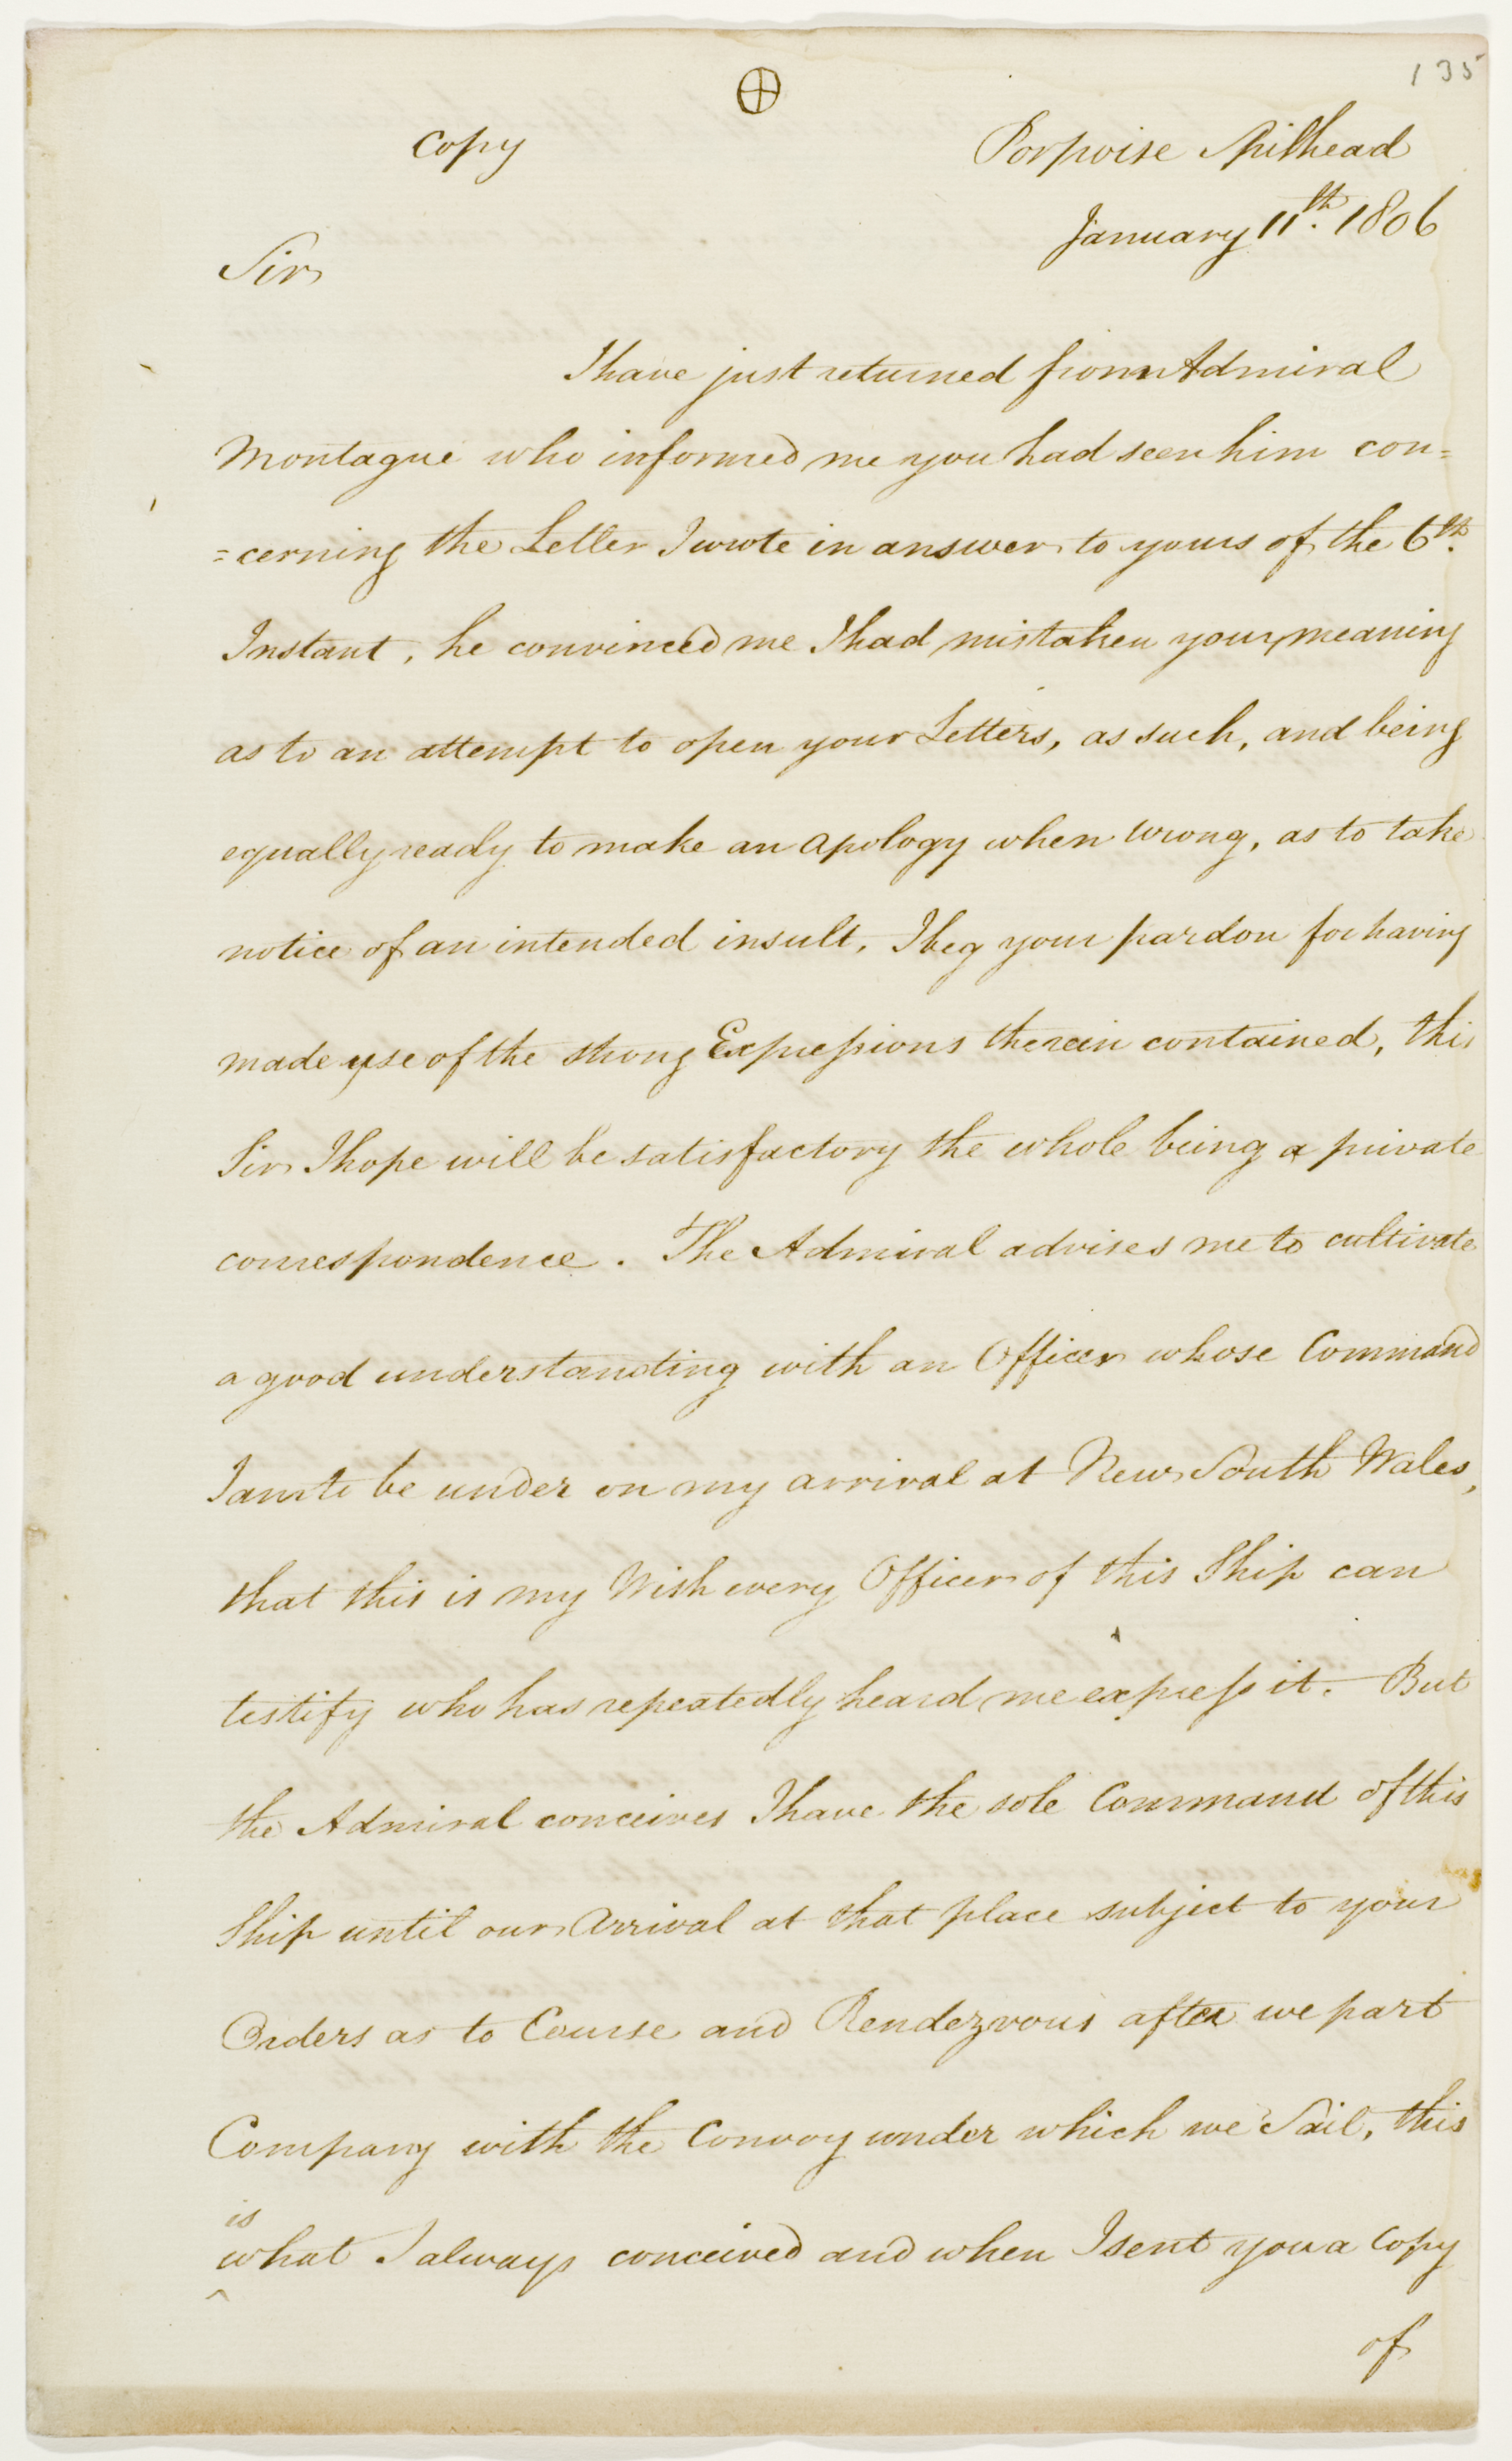 135
⊕
Copy
Porpoise Spithead
January 11th. 1806
Sir
I have just returned from Admiral
Montague who informed me you had seen him con=
=cerning the Letter I wrote in answer to yours of the 6th.
Instant, he convinced me I had mistaken your meaning
as to an attempt to open your Letters, as such, and being
equally ready to make an apology when wrong, as to take
notice of an intended insult, I beg your pardon for having
made use of the strong Expressions therein contained, this
Sir I hope will be satisfactory the whole being a private
correspondence. The Admiral advises me to cultivate
a good understanding with an Officer whose Command
I am to be under on my arrival at New South Wales,
that this is my Wish every Officer of this Ship can
testify who has repeatedly heard me express it. But
the Admiral conceives I have the sole Command of this
Ship until our Arrival at that place subject to your
Orders as to Course and Rendezvous after we part
Company with the Convoy under which we Sail, this
is
^ what I always conceived and when I sent you a Copy
of